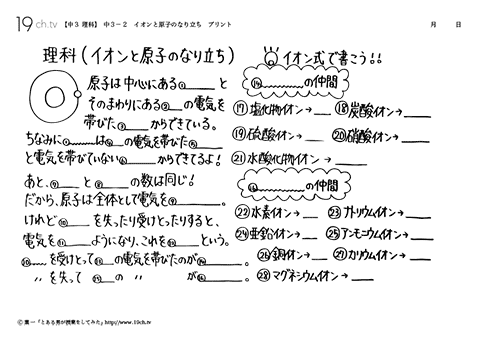 19ch.tv 【中3 理科】 中3-2 イオンと原子のなり立ち プリント 月 日
理科(イオンと原子のなり立ち)
原子は中心にある①＿＿と
そのまわりにある②＿の電気を
帯びた③＿＿からできている。
ちなみに①＿＿は④＿の電気を帯びた⑤＿＿
と電気を帯びていない⑥＿＿からできてるよ!
あと、⑦＿＿と⑧＿＿の数は同じ!
だから、原子は全体として電気を⑨＿＿。
けれど⑩＿＿を失ったり受けとったりすると、
電気を⑪＿＿ようになり、これを⑫＿＿という。
＿＿を受けとって＿の電気を帯びたのが＿＿。
〃を失って＿の 〃 が＿＿。
イオン式で書こう!!
＿＿の仲間
⑰塩化物イオン→＿＿ ⑱炭酸イオン→＿＿
⑲硫酸イオン→＿＿ ⑳硝酸イオン→＿＿
㉑水酸化物イオン→＿＿
＿＿の仲間
㉒水素イオン→＿＿ ㉓ナトリウムイオン→＿＿
㉔亜鉛イオン→＿＿ ㉕アンモニウムイオン→＿＿
㉖銅イオン→＿＿ ㉗カリウムイオン→＿＿
㉘マグネシウムイオン→＿＿
©葉一『とある男が授業をしてみた』http://www.19ch.tv